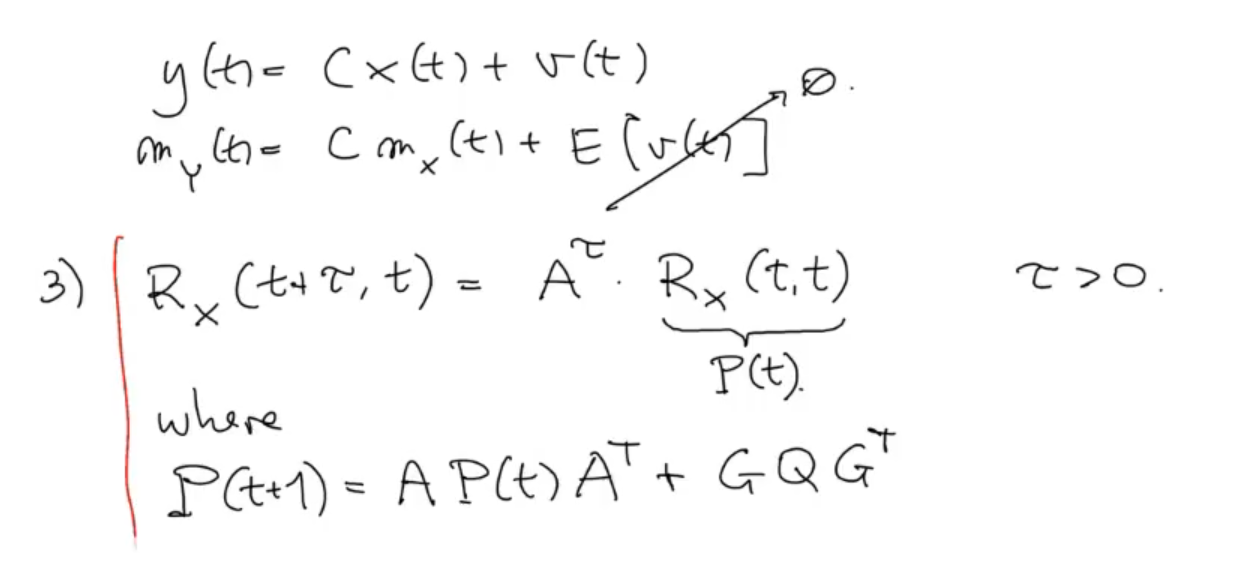 y(t) = Cx(t) + v(t)
m_Y(t) = C m_x(t) + E[v(t)] → ∅.
3) R_x(t+τ, t) = A^τ · R_x(t,t) τ > 0.
P(t).
where
P(t+1) = A P(t) A^T + G Q G^T